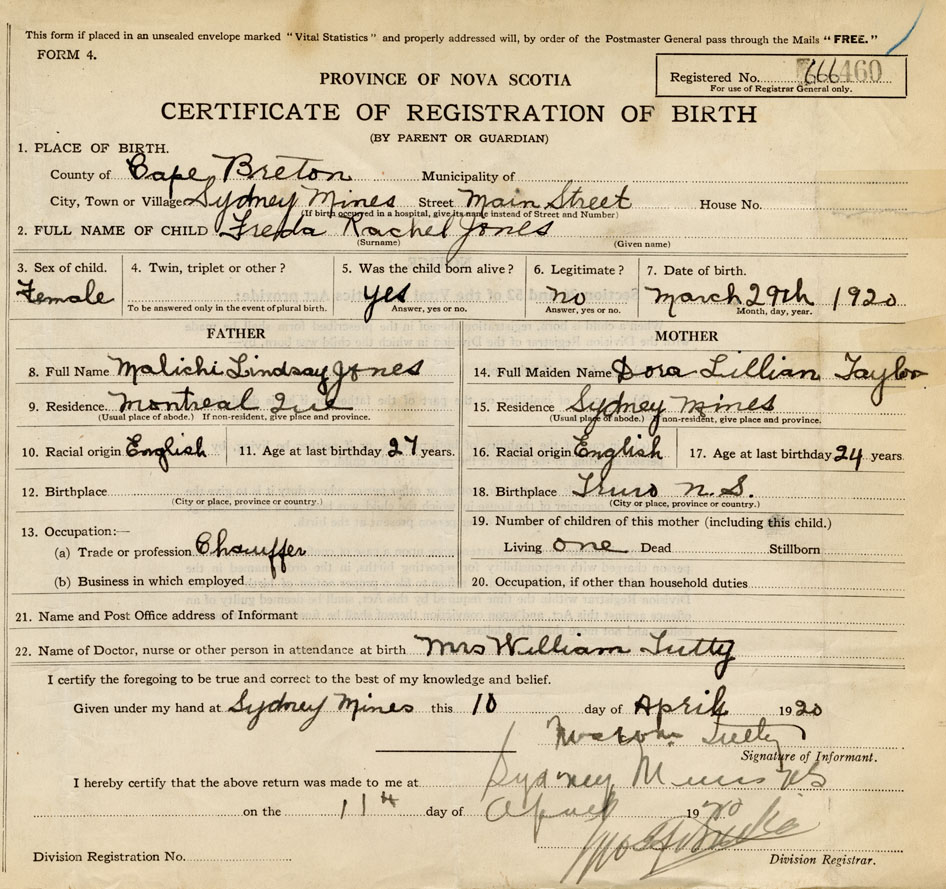 This form if placed in an unsealed envelope marked "Vital Statistics" and properly addressed will, by order of the Postmaster General pass through the Mails "FREE."
FORM 4.
PROVINCE OF NOVA SCOTIA
Registered No. 460
For use of Registrar General only.
CERTIFICATE OF REGISTRATION OF BIRTH
(BY PARENT OR GUARDIAN)
1. PLACE OF BIRTH.
County of Cape Breton Municipality of
City, Town or Village Sydney Mines Street Main Street House No.
(If birth occurred in a hospital, give its name instead of Street and Number)
2. FULL NAME OF CHILD Freda Rachel Jones
(Surname) (Given name)
3. Sex of child. 4. Twin, triplet or other? 5. Was the child born alive? 6. Legitimate? 7. Date of birth.
Female yes no March 29th 1920
To be answered only in the event of plural birth. Answer, yes or no. Answer, yes or no. Month, day, year.
FATHER MOTHER
8. Full Name Malichi Lindsay Jones 14. Full Maiden Name Dora Lillian Taylor
9. Residence Montreal Que 15. Residence Sydney Mines
(Usual place of abode.) If non-resident, give place and province. (Usual place of abode.) If non-resident, give place and province.
10. Racial origin English 11. Age at last birthday 27 years. 16. Racial origin English 17. Age at last birthday 24 years
12. Birthplace 18. Birthplace Truro N.S.
(City or place, province or country.) (City or place, province or country.)
13. Occupation:— 19. Number of children of this mother (including this child.)
(a) Trade or profession Chauffer Living one Dead Stillborn
(b) Business in which employed 20. Occupation, if other than household duties
21. Name and Post Office address of Informant
22. Name of Doctor, nurse or other person in attendance at birth Mrs William Tutty
I certify the foregoing to be true and correct to the best of my knowledge and belief.
Given under my hand at Sydney Mines this 10 day of April 1920
Tutty
Signature of Informant.
I hereby certify that the above return was made to me at Sydney Mines NS
on the 11th day of April 1920
Division Registration No. Division Registrar.